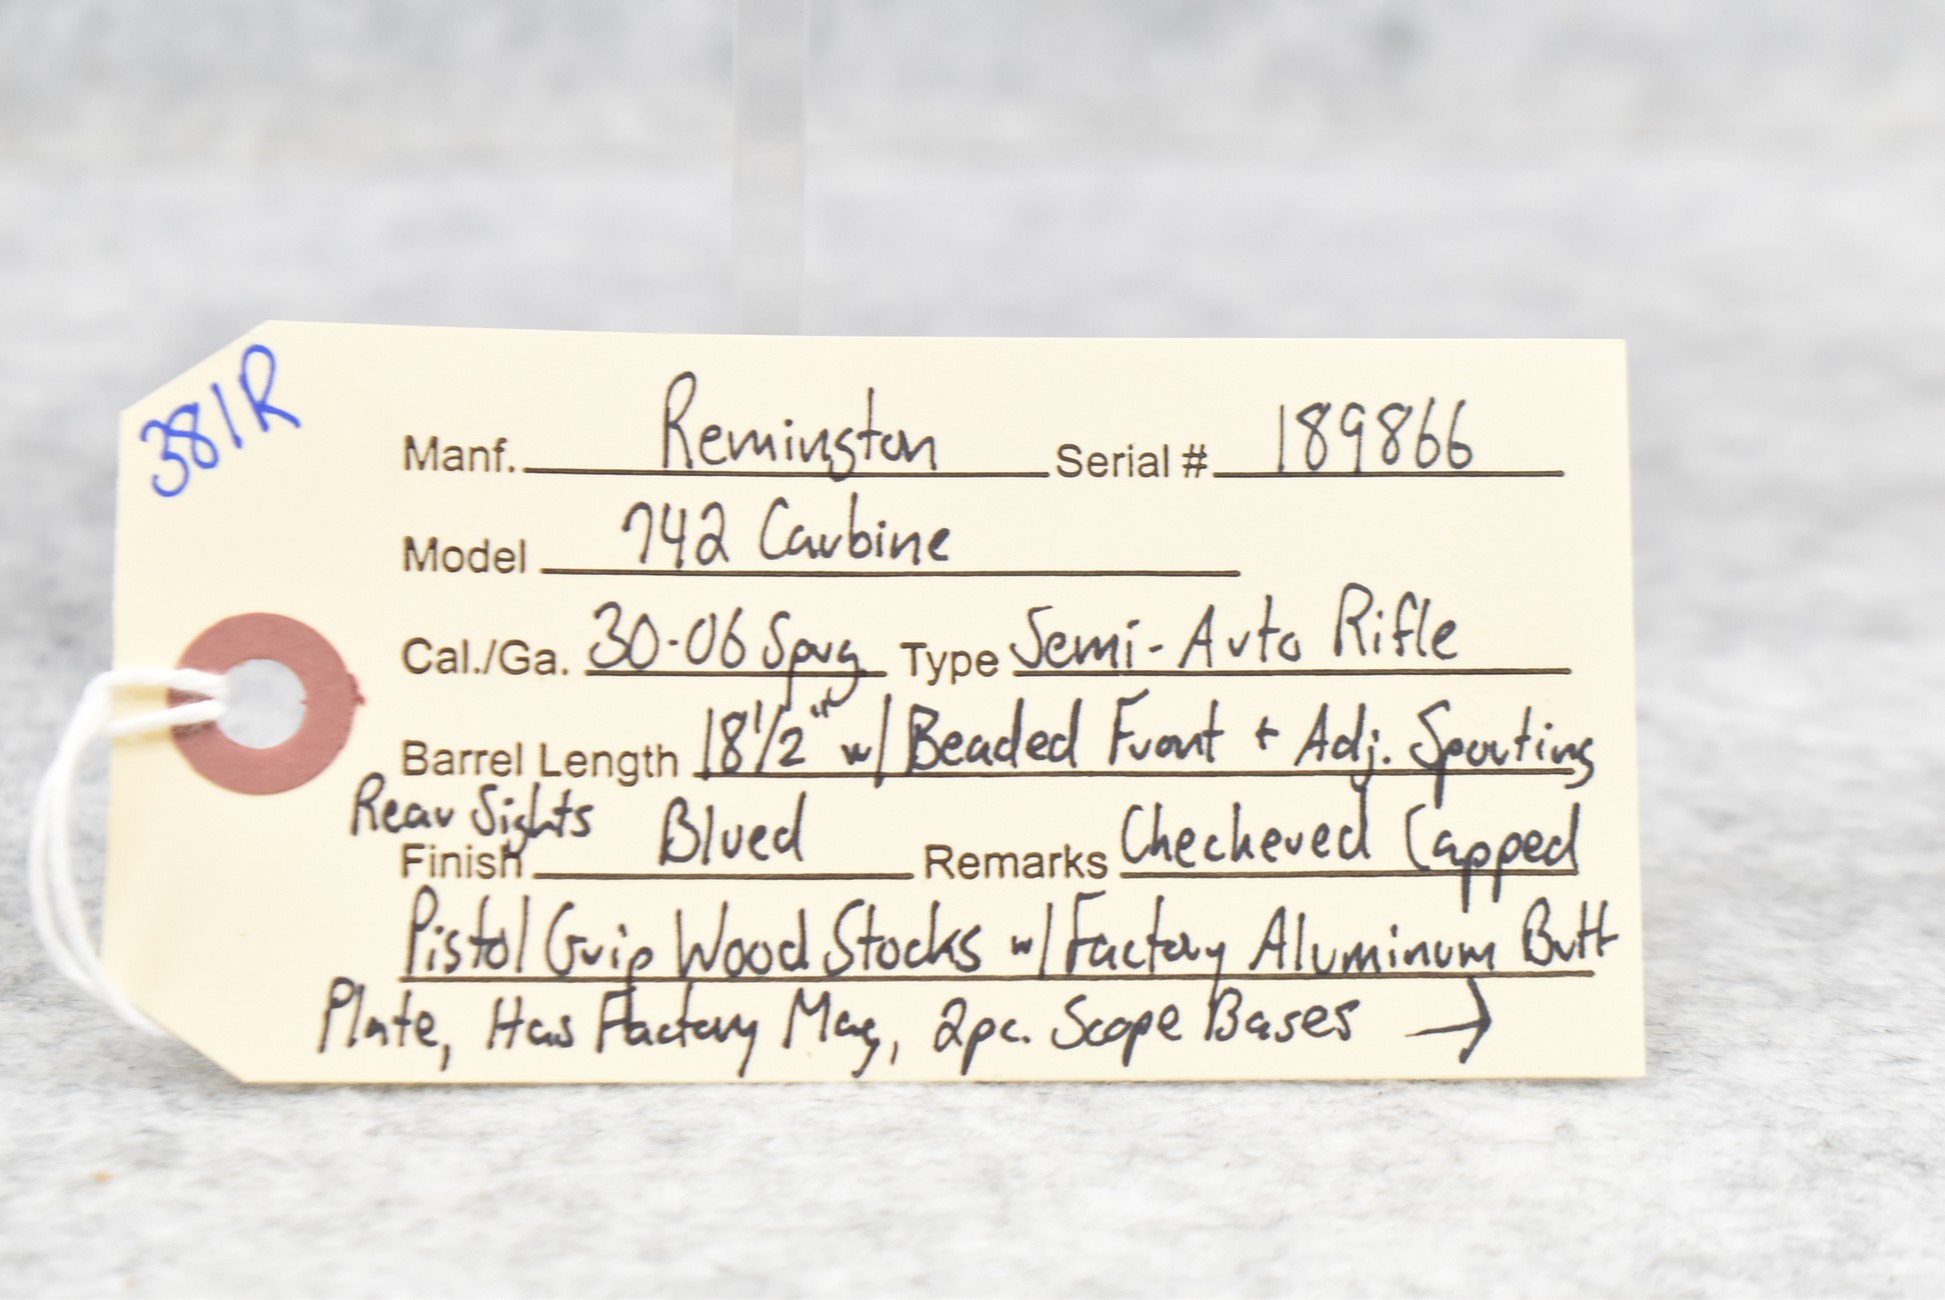 381R
Manf. Remington Serial # 189866
Model 742 Carbine
Cal./Ga. 30-06 Sprg Type Semi-Auto Rifle
Barrel Length 18 1/2" w/ Beaded Front + Adj. Sporting
Rear Sights
Finish Blued Remarks Checkered Capped
Pistol Grip Wood Stocks w/ Factory Aluminum Butt
Plate, Has Factory Mag, 2pc. Scope Bases →